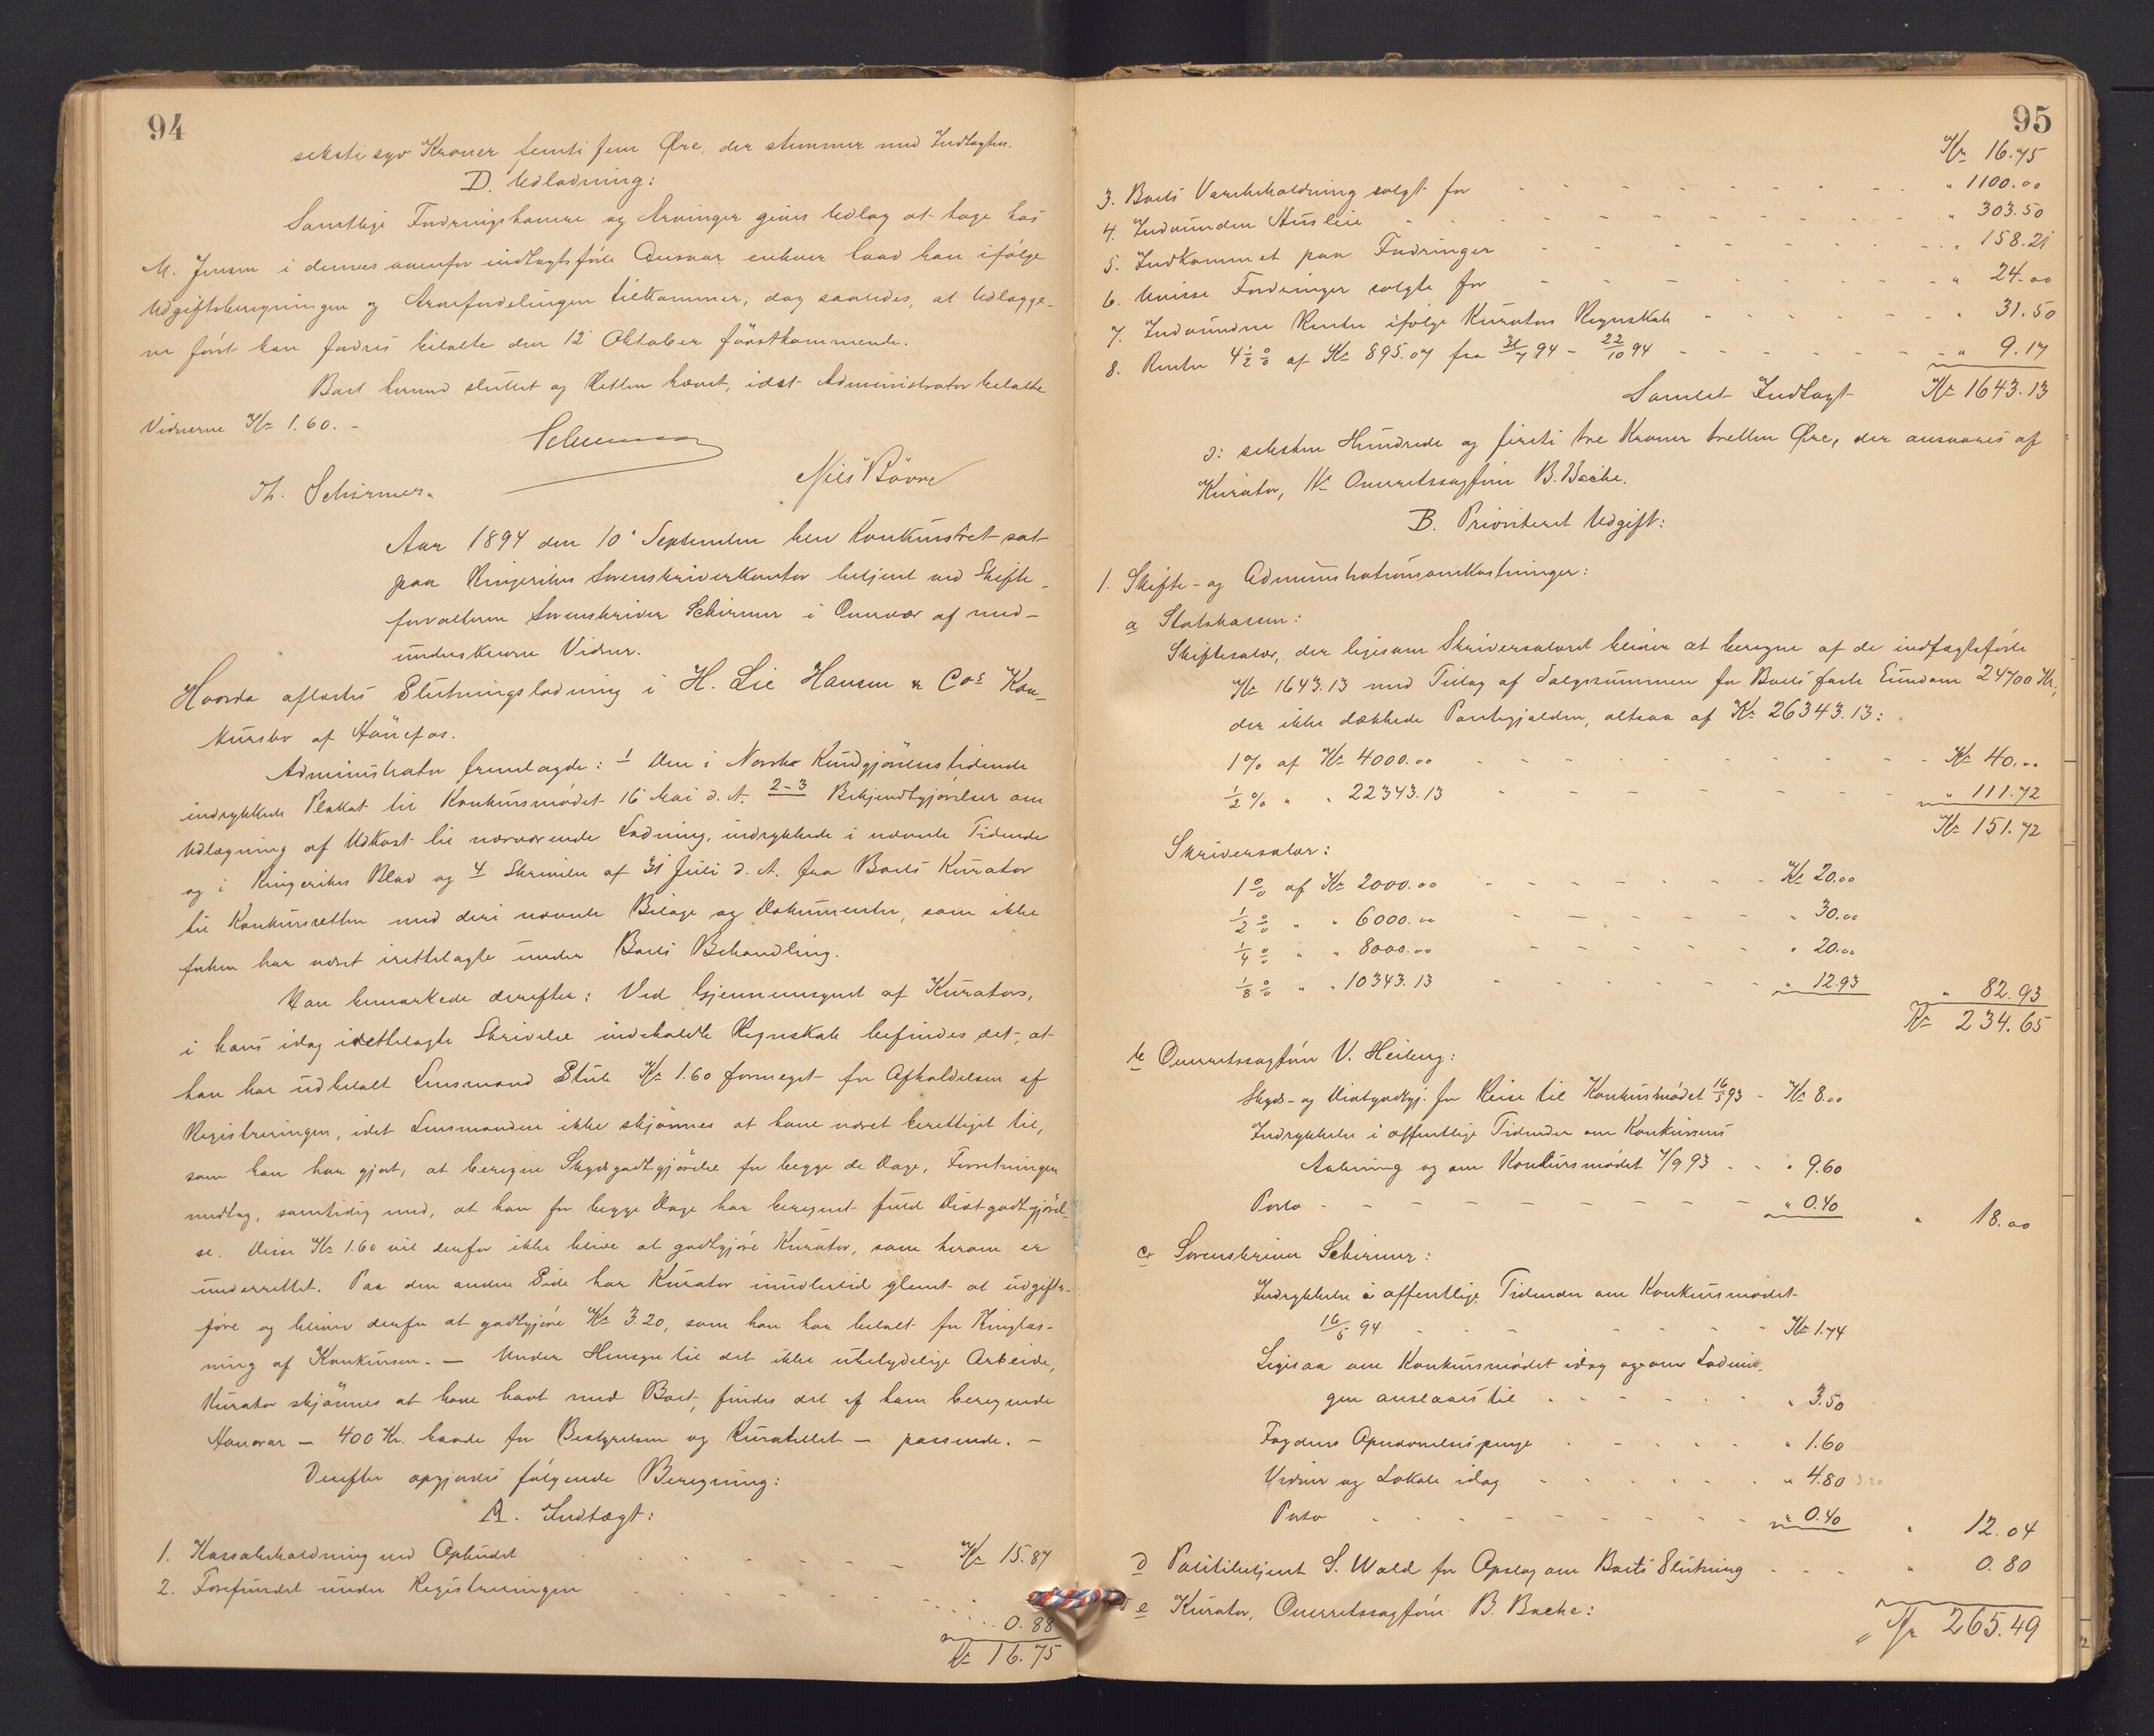 94
seksti syv Kroner femti fem Øre, der stemmer med Indtægten.
D. Udlodning:
Samtlige Fordringshavere og Arvinger gives Udlæg at tage hos
M. Jensen i dennes ovenfor indtægtsførte Ansvar enhver hvad han ifølge
Udgiftsberegningen og Arvefordelingen tilkommer, dog saaledes, at Udlægge-
ne først kan fordres betalte den 12 Oktober førstkommende.
Boet hermed sluttet og Retten hævet, idet Administrator betalte
Vidnerne Kr 1.60. -
Schirmer
Th. Schirmer.
Nils Bövre
Aar 1894 den 10 September blev Konkursret sat
paa Ringerikes Sorenskriverkontor betjent ved Skifte-
forvalteren Sorenskriver Schirmer i Overvær af med-
underskrevne Vidner.
Hvorda afsluttes Slutningslodning i H. Lie Hansen & Cos Kon-
kursbo af Hönefos.
Administrator fremlagde: 1 Den i Norske Kundgjörelsestidende
indrykkede Plakat til Konkursmødet 16 Mai d. A. 2-3 Bekjendtgjörelser om
Udlægning af Udkast til nærværende Lodning, indrykkede i nævnte Tidende
og i Ringerikes Blad og 4 Skrivelse af 31 Juli d. A. fra Boets Kurator
til Konkursretten med deri nævnte Bilage og Dokumenter, som ikke
forhen har været irettelagte under Boets Behandling.
Man bemærkede derefter: Ved Gjennemsynet af Kurators,
i hans idag irettelagte Skrivelse indeholdte Regnskab befindes det, at
han har udbetalt Lensmand Stub Kr 1.60 formeget for Afholdelsen af
Registreringen, idet Lensmanden ikke skjönnes at have været berettiget til,
som han har gjort, at beregne Skydsgodtgjörelse for begge de Dage, Forretningen
medtog, samtidig med, at han for begge Dage har beregnet fuld Diætgodtgjörel-
se. Disse Kr 1.60 vil derfor ikke blive at godtgjöre Kurator, som herom er
underrettet. Paa den anden Side har Kurator imidlertid glemt at udgifts-
føre og bliver derfor at godtgjøre Kr 3.20, som han har betalt for Thinglæs-
ning af Konkursen. — Under Hensyn til det ikke ubetydelige Arbeide,
Kurator skjönnes at have havt med Boet, findes det af ham beregnede
Honorar — 400 Kr. baade for Bestyrelsen og Kuratellet — passende. —
Derefter opgjordes følgende Beregning:
A. Indtægt:
1. Kassabeholdning ved Opbudet Kr 15.87
2. Forefundet under Registreringen " 0.88
Kr 16.75
95
Kr 16.75
3. Boets Varebeholdning solgt for " 1100.00
4. Indvunden Husleie " 303.50
5. Indkommet paa Fordringer " 158.21
6. Uvisse Fordringer solgte for " 24.00
7. Indvundne Renter ifølge Kurators Regnskab " 31.50
8. Renter 4 1/2 % af Kr 895.07 fra 31/7 94 - 22/10 94 " 9.17
Samlet Indtægt Kr 1643.13
ɔ: seksten Hundrede og firti tre Kroner tretten Øre, der ansvares af
Kurator, Hr Overretssagfører B. Bache.
B. Prioriteret Udgift:
1. Skifte- og Administrationsomkostninger:
a Statskassen:
Skiftesalær, der ligesom Skriversalæret bliver at beregne af de indtægtsførte
Kr 1643.13 med Tillæg af Salgssummen for Boets faste Eiendom 24700 Kr,
der ikke dækkede Pantegjælden, altsaa af Kr 26343.13:
1% af Kr 4000.00 Kr 40.00
1/2 % " " 22343.13 " 111.72
Kr 151.72
Skriversalær:
1 % af Kr 2000.00 Kr 20.00
1/2 % " " 6000.00 " 30.00
1/4 % " " 8000.00 " 20.00
1/8 % " " 10343.13 " 12.93 " 82.93
Kr 234.65
b Overretssagfører V. Heiberg:
Skyds- og Diætgodtgj. for Reise til Konkursmødet 16/5 93 - Kr 8.00
Indrykkelse i offentlige Tidender om Konkursens
Aabning og om Konkursmødet 7/9 93 " 9.60
Porto " 0.40 " 18.00
c Sorenskriver Schirmer:
Indrykkelse i offentlige Tidender om Konkursmødet
16/5 94 Kr 1.74
Ligesaa om Konkursmødet idag og om Lodnin-
gen anslaaes til " 3.50
Fogdens Opnævnelsespenge " 1.60
Vidner og Lokale idag " 4.80 3.20
Porto " 0.40 " 12.04
d Politibetjent S. Wold for Opslag om Boets Slutning " 0.80
e Kurator, Overretssagfører B. Bache:
Kr 265.49